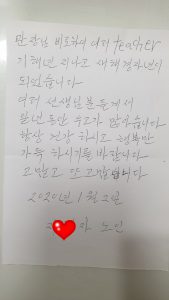 관장님 비롯하여 여러 teacher
기해년 지나고 새해 경자년이
되었습니다
여러 선생님분들께서
일년동안 수고가 많으셨습니다
항상 건강 하시고 행복만
가득 하시기를 바랍니다
고맙고 또 고맙습니다
2020년 1월 2일
노인